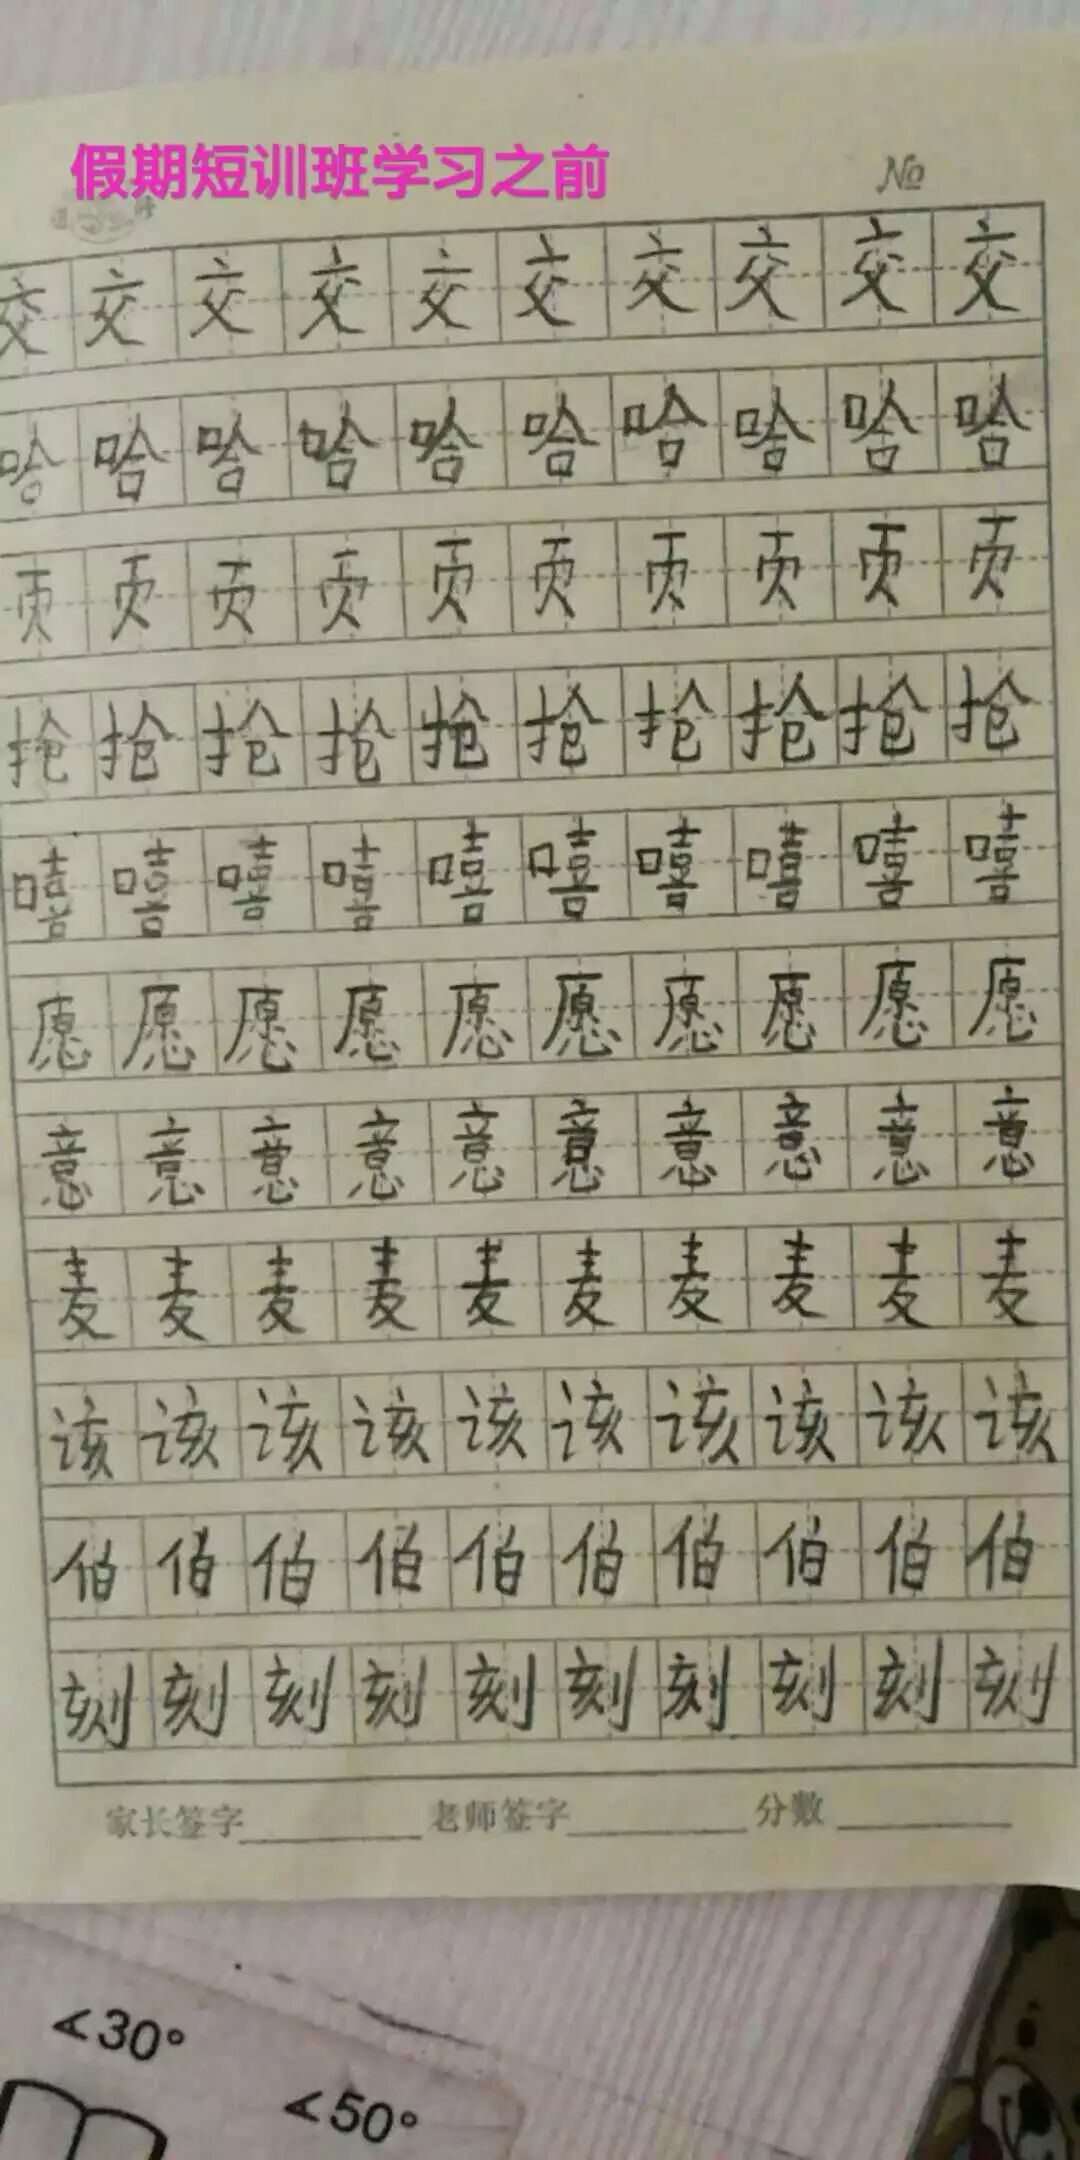 假期短训班学习之前
№
交交交交交交交交交交
哈哈哈哈哈哈哈哈哈哈
页页页页页页页页页页
抢抢抢抢抢抢抢抢抢抢
嘻嘻嘻嘻嘻嘻嘻嘻嘻嘻
愿愿愿愿愿愿愿愿愿愿
意意意意意意意意意意
麦麦麦麦麦麦麦麦麦麦
该该该该该该该该该该
伯伯伯伯伯伯伯伯伯伯
刻刻刻刻刻刻刻刻刻刻
家长签字 老师签字 分数
∢30°
∢50°